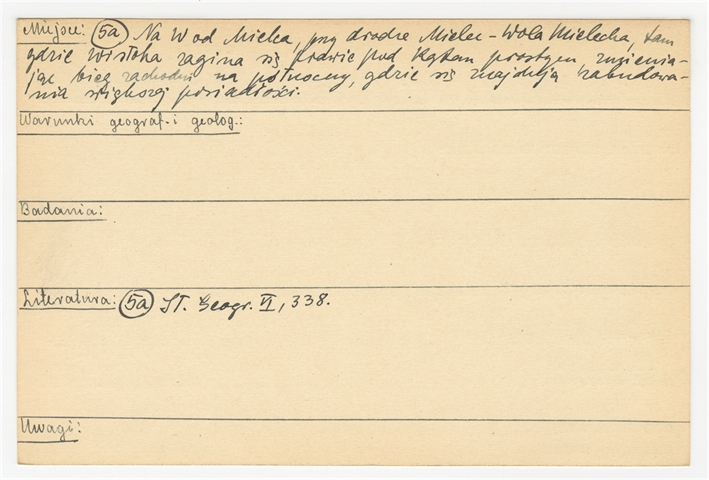 Miejsce: (5a) Na W od Mielca, przy drodze Mielec-Wola Mielecka, tam
gdzie Wisłoka zagina się prawie pod kątem prostym, zmienia-
jąc bieg zachodni na północny, gdzie się znajdują zabudowa-
nia większej posiadłości.
Warunki geograf. i geolog.:
Badania:
Literatura: (5a) Sł. Geogr. VI, 338.
Uwagi: